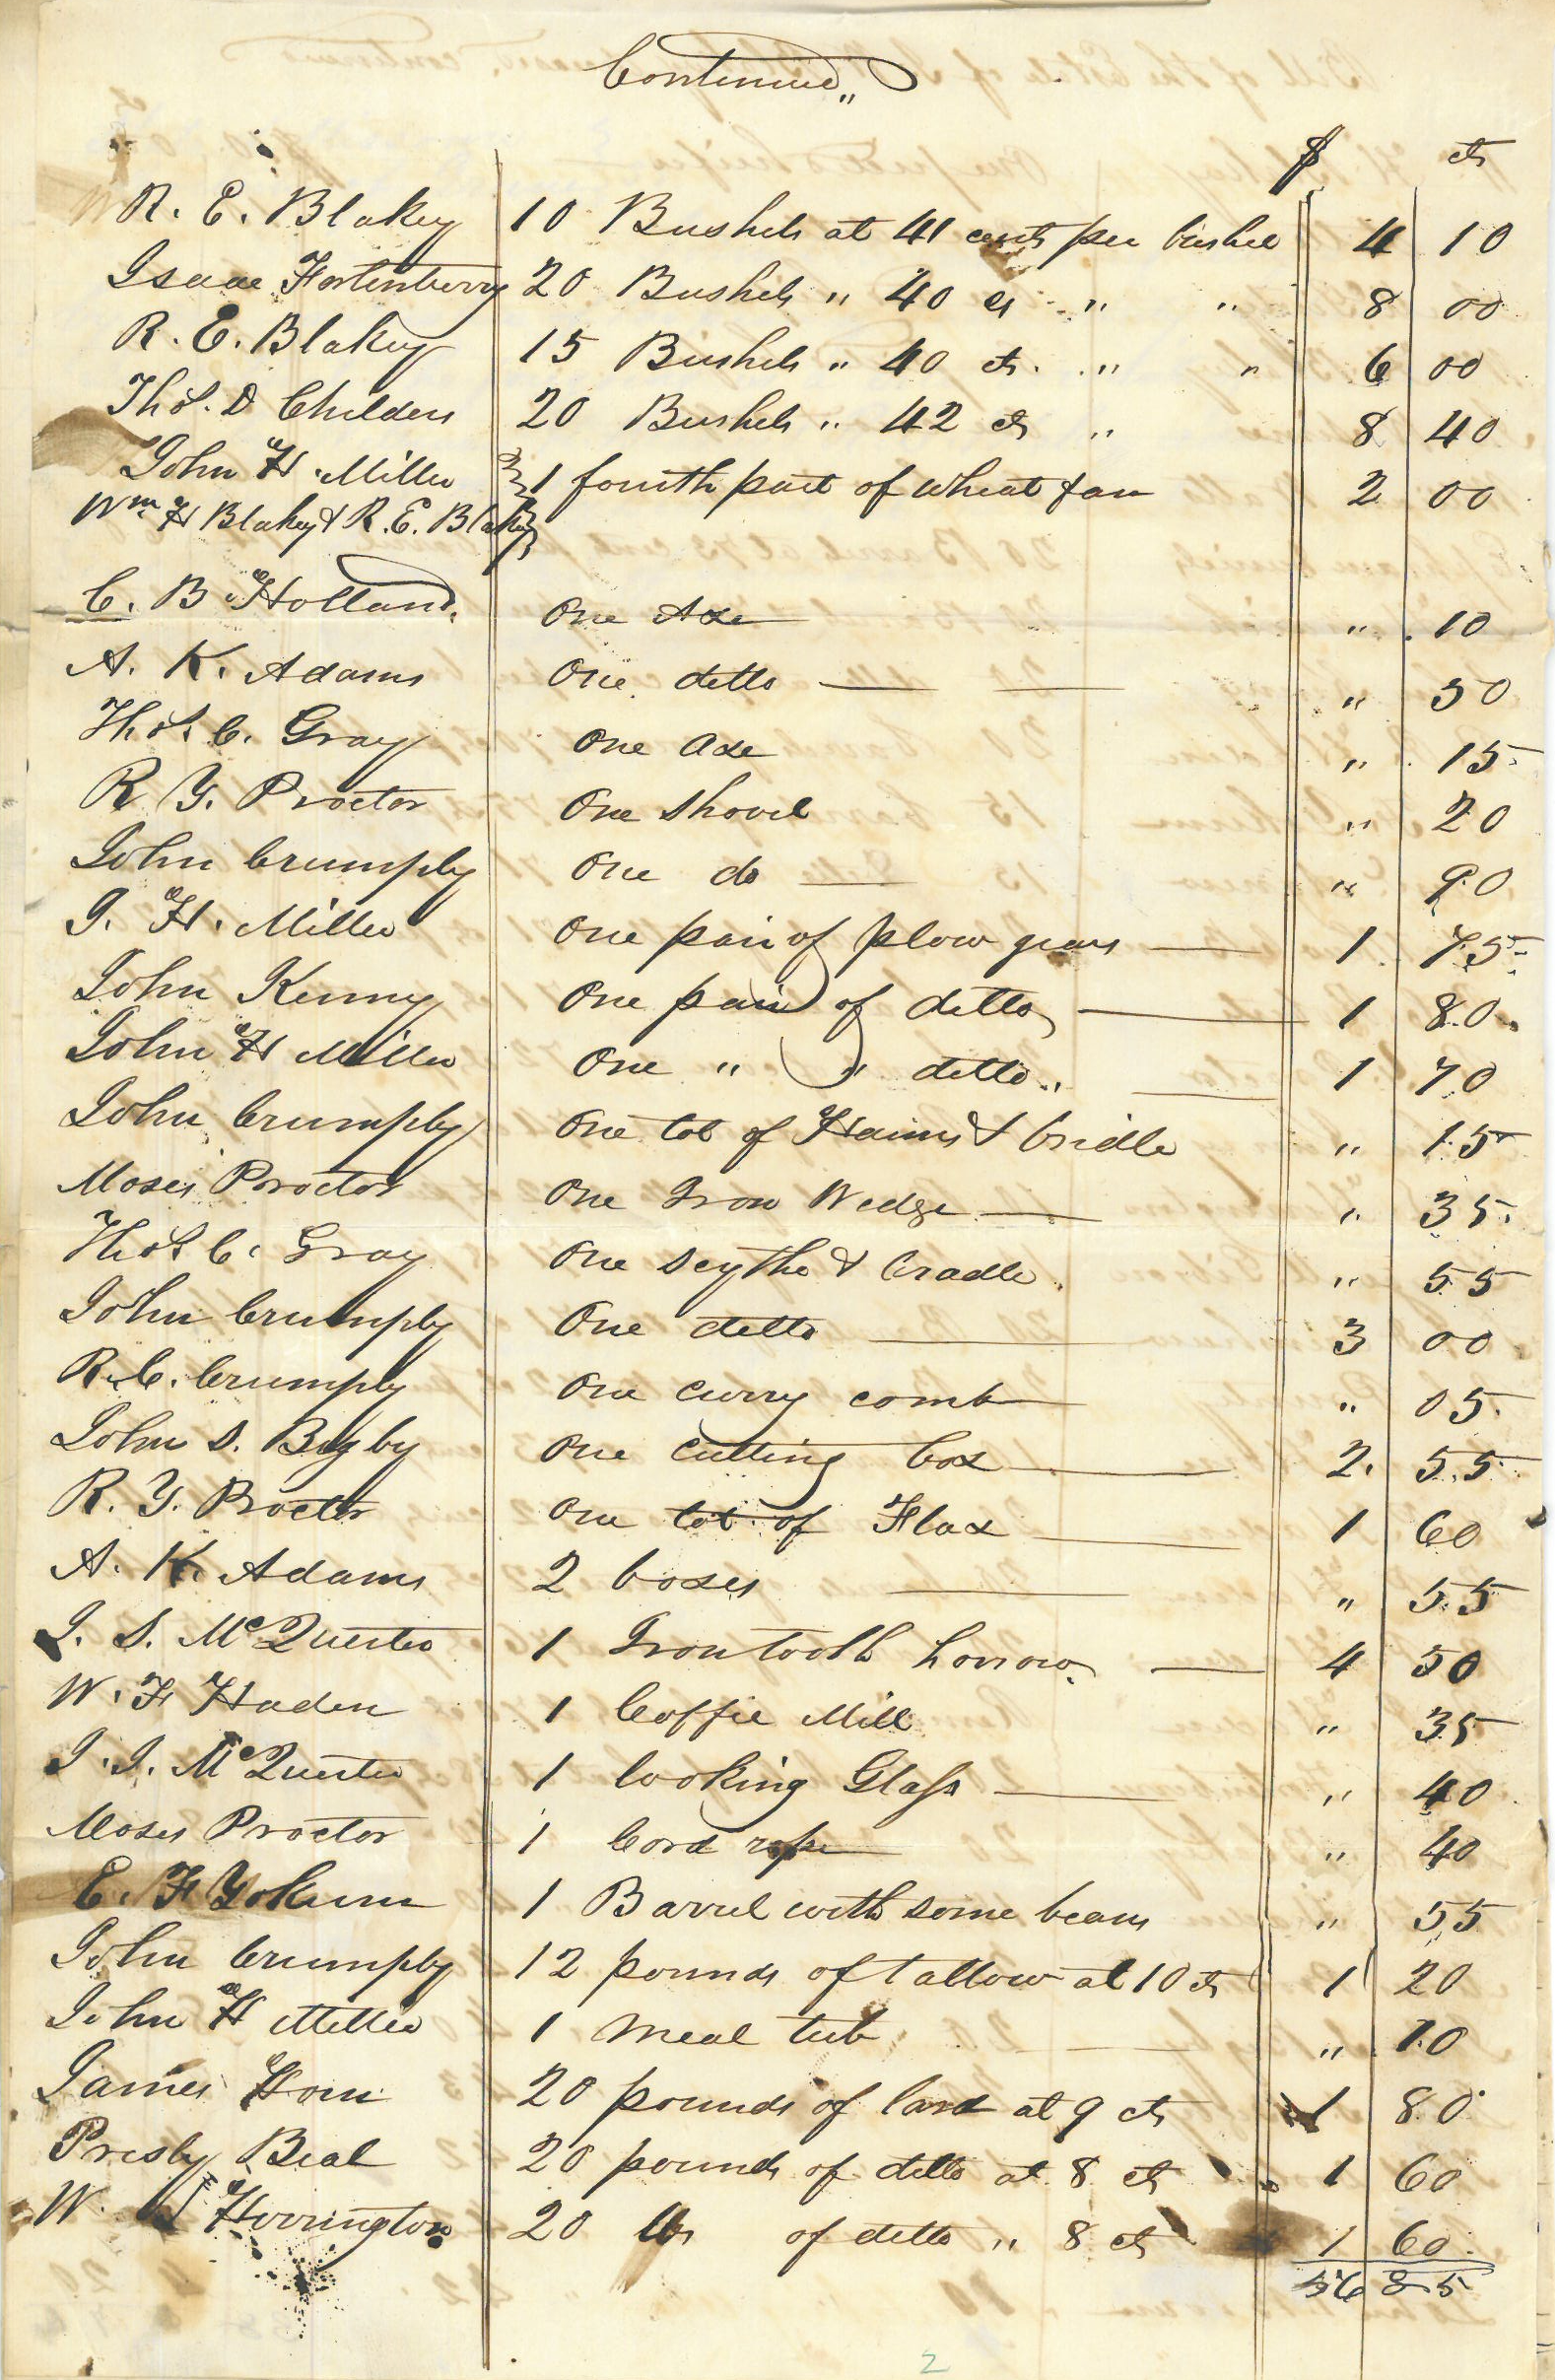 Continued,,
$ cts
R. E. Blakey 10 Bushels at 41 cents per bushel 4 10
Isaac Fortenberry 20 Bushels " 40 cts " " 8 00
R. E. Blakey 15 Bushels " 40 cts. " " 6 00
Thos. D Childers 20 Bushels " 42 cts " 8 40
John H. Miller 1 fourth part of wheat fan 2 00
Wm. H Blakey & R. E. Blakey
C. B. Holland. One Axe " 10
A. K. Adams One ditto " 50
Thos. C. Gray One Axe " 15
R Y. Proctor One Shovel " 20
John Crumply One do " 90
J. H. Miller One pair of plow gears 1 75
John Kenny One pair of ditto 1 80
John H Miller One " " ditto " 1 70
John Crumply One lot of Haims & bridle " 15
Moses Proctor One Iron Wedge " 35
Thos C. Gray One Scythe & Cradle " 55
John Crumply One ditto 3 00
R. C. Crumply One curry comb " 05
John S. Bigby One Cutting box 2 55
R. Y. Proctor One lot of Flax 1 60
A. K. Adams 2 boxes " 55
J. S. McQuerter 1 Irontooth horrow 4 50
W. F Haden 1 Coffie Mill " 35
J. J. McQuerter 1 looking Glass " 40
Moses Proctor 1 Cord rope " 40
E. F Yokum 1 Barrel with some beans " 55
John Crumply 12 pounds of tallow at 10 cts 1 20
John H Miller 1 meal tub " 10
James Horn 20 pounds of lard at 9 cts 1 80
Presly Beal 20 pounds of ditto at 8 cts 1 60
W. Horrington 20 lbs of ditto " 8 cts 1 60
56 85
2